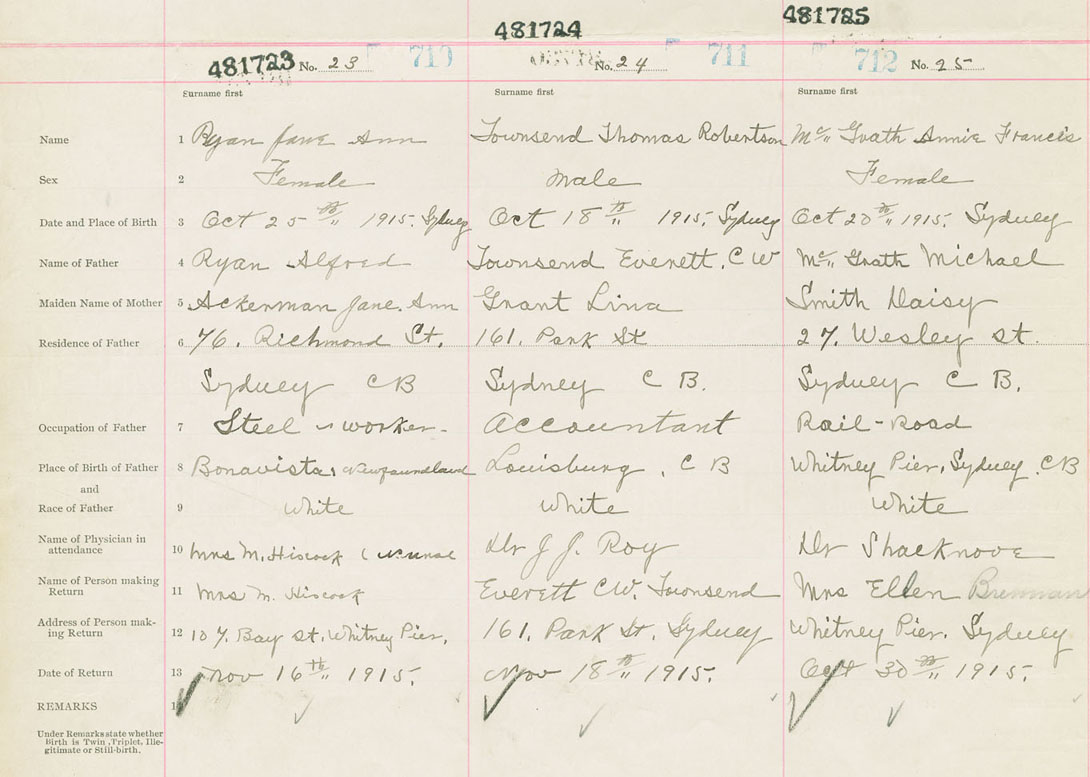 481724
481725
481723 No. 23 710 No. 24 711 712 No. 25
Surname first Surname first Surname first
Name 1 Ryan Jane Ann Townsend Thomas Robertson Mc,, Grath Annie Francis
Sex 2 Female Male Female
Date and Place of Birth 3 Oct 25th,, 1915. Sydney Oct 18th,, 1915. Sydney Oct 20th,, 1915. Sydney
Name of Father 4 Ryan Alfred Townsend Everett. C W Mc,, Grath Michael
Maiden Name of Mother 5 Ackerman Jane. Ann Grant Lina Smith Daisy
Residence of Father 6 76. Richmond St. 161. Park St 27. Wesley St.
Sydney CB Sydney C B. Sydney C B.
Occupation of Father 7 Steel worker. Accountant Rail-Road
Place of Birth of Father 8 Bonavista, Newfoundland Louisburg, C B Whitney Pier, Sydney. CB
and
Race of Father 9 White White White
Name of Physician in
attendance 10 Mrs M. Hiscock ( Dr J J. Roy Dr Shacknove
Name of Person making
Return 11 Mrs M. Hiscock Everett CW. Townsend Mrs Ellen Brennan
Address of Person mak-
ing Return 12 107. Bay St, Whitney Pier, 161. Park St. Sydney Whitney Pier. Sydney
Date of Return 13 Nov 16th,, 1915. Nov 18th,, 1915. Oct 30th,, 1915.
REMARKS 14
Under Remarks state whether
Birth is Twin, Triplet, Ille-
gitimate or Still-birth.